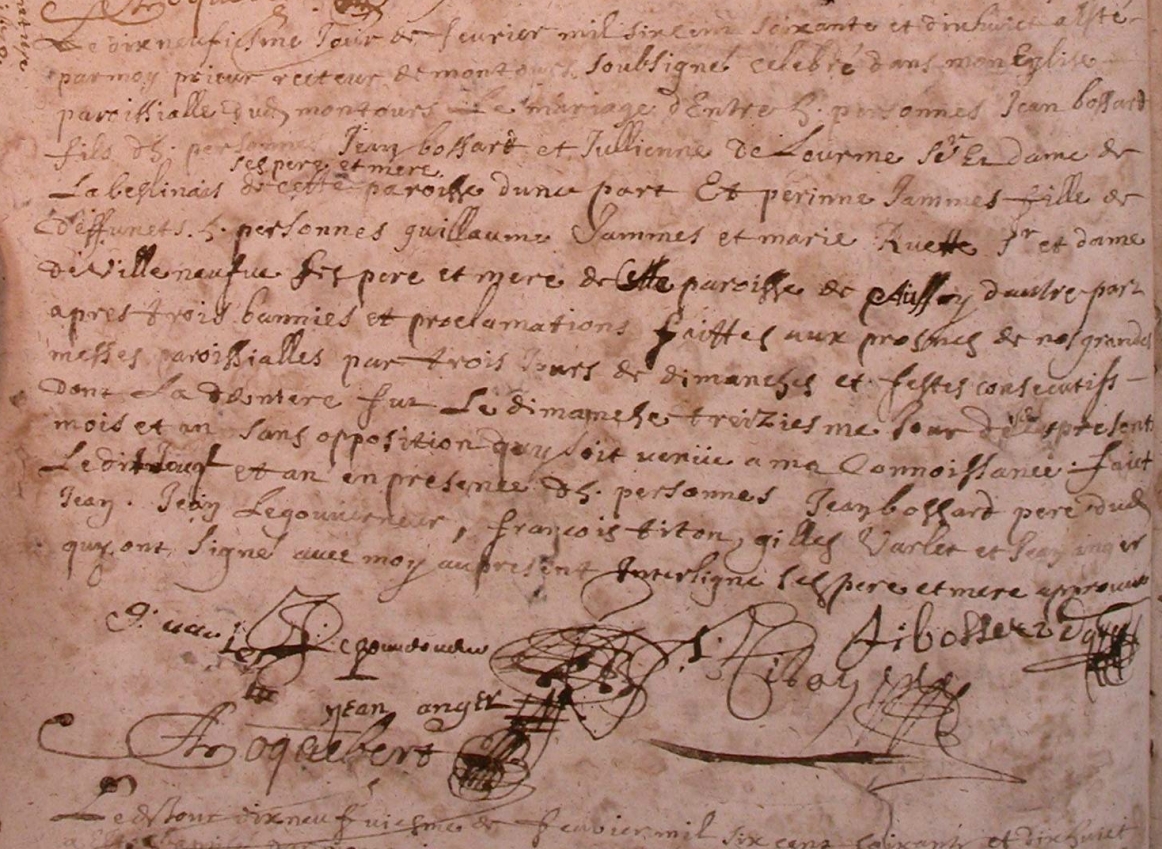 Le dixneufiesme Jour de feuvrier mil six cent soixante et dixhuict a esté
par moy prieur recteur de montours soubsigné celebré dans mon Eglise
paroissialle dud montours Le mariage d'Entre h. personnes Jean bossard
fils d'h. personnes Jean bossard et Jullienne de Lourme Sr Et dame de
ses pere et mere
La beslinais de cette paroisse dune part Et perinne Jammes fille de
deffunets h. personnes guillaume Jammes et marie Ruette Sr et dame
de villeneufve ses pere et mere de cette paroisse de dautre part
apres trois bannies et proclamations faittes aux prosnes de nos grandes
messes paroissialles par trois Jours de dimanches et festes consecutifs
dont La derniere fut Le dimanche treiziesme Jour de present
mois et an sans opposition quy soit venüe a ma Connoissance. faict
Ledit Jour et an en presence d'h. personnes Jean bossard pere dud
Jean. Jean Legouverneur, françois titon, gilles Varlet et Jean anger
quy ont signé avec moy au present Interligne ses pere et mere approuvé
Jean anger
Roquebert
Ledit Jour dixneufviesme de feuvrier mil six cent soixante et dixhuict